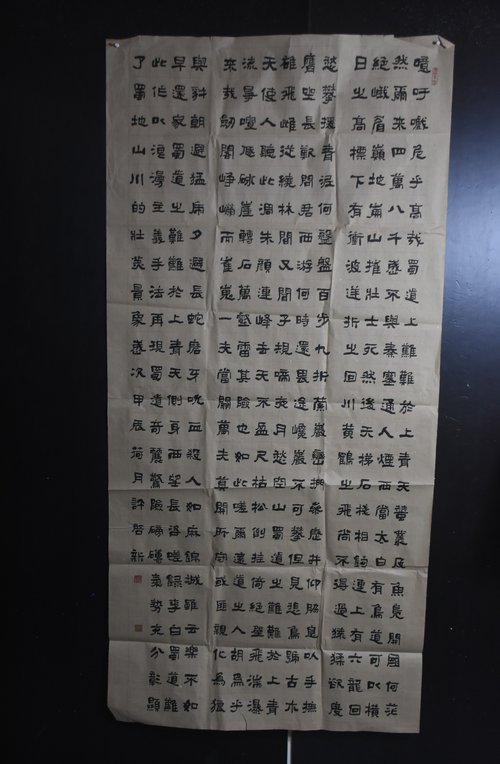 噫吁嚱危乎高哉蜀道上難難於上青天蠶叢及魚鳧開國何茫
然爾來四萬八千歲不與秦塞通人煙西當太白有鳥道可以橫
絕峨眉巔地崩山摧壯士死然後天梯石棧相鉤連上有六龍回
日之高標下有衝波逆折之回川黃鶴之飛尚不得過猿猱欲度
愁攀援青泥何盤盤百步九折縈巖巒捫參歷井仰脅息以手撫
膺坐長歎問君西游何時還畏途巉巖不可攀但見悲鳥號古木
雄飛雌從繞林間又聞子規啼夜月愁空山蜀道之難難於上青
天使人聽此凋朱顏連峰去天不盈尺枯松倒挂倚絕壁飛湍瀑
流爭喧豗砯崖轉石萬壑雷其險也如此嗟爾遠道之人胡為乎
來哉劍閣崢嶸而崔嵬一夫當關萬夫莫開所守或匪親化為狼
與豺朝避猛虎夕避長蛇磨牙吮血殺人如麻錦城雖云樂不如
早還家蜀道之難難於上青天側身西望長咨嗟錄李白蜀道難
此作以浪漫主義手法再現蜀道奇麗驚險磅礴氣勢充分彰顯
了蜀地山川的壯美景象歲次甲辰荷月許啓新